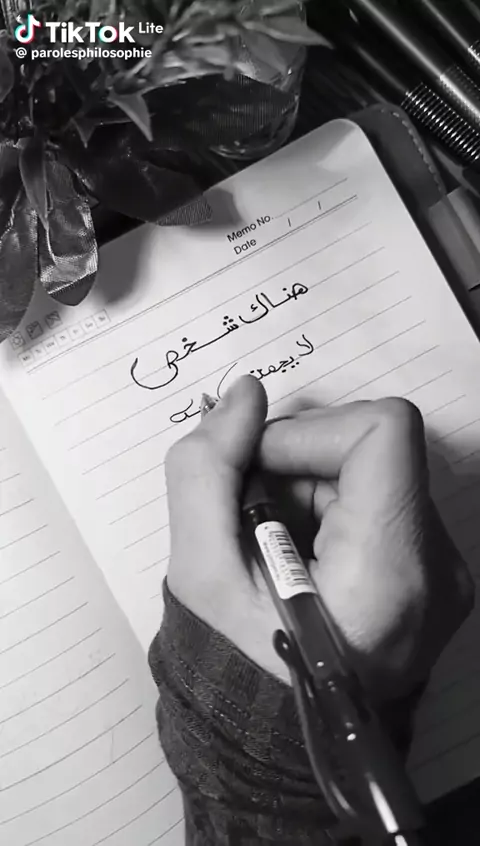 TikTok Lite
@ parolesphilosophie
Memo No.
Date / /
هناك شخص
لا